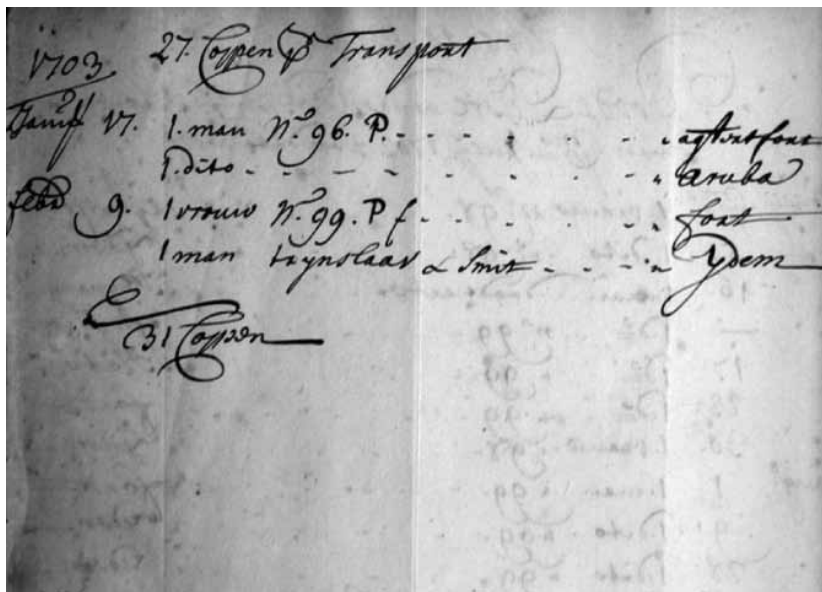 1703 27. Coppen pr Transport
17. 1. man No. 96. P. - - - - - - " agt Int fort
1. dito - - - - - - - - " aruba
feb 9. 1 vrouw No. 99. P f - - - - - " fort
1 man & Smit - - - - " Ydem
31 Coppen